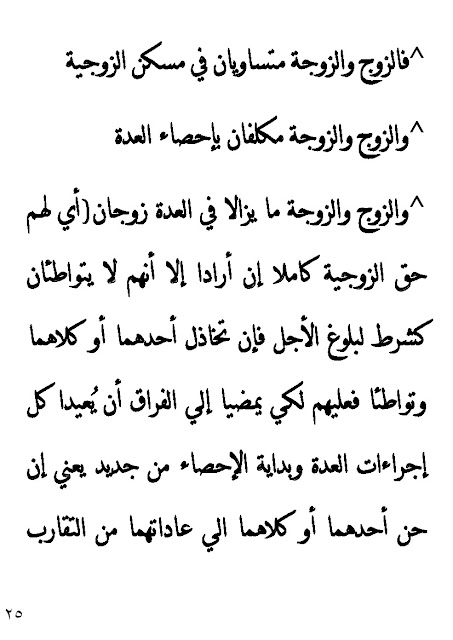 ^فالزوج والزوجة متساويان في مسكن الزوجية
^والزوج والزوجة مكلفان بإحصاء العدة
^والزوج والزوجة ما يزالا في العدة زوجان(أي لهم
حق الزوجية كاملا إن أرادا إلا أنهم لا يتواطئان
كشرط لبلوغ الأجل فإن تخاذل أحدهما أو كلاهما
وتواطئا فعليهم لكي يمضيا إلي الفراق أن يُعيدا كل
إجراءات العدة وبداية الإحصاء من جديد يعني إن
حن أحدهما أو كلاهما الي عاداتهما من التقارب
٢٥